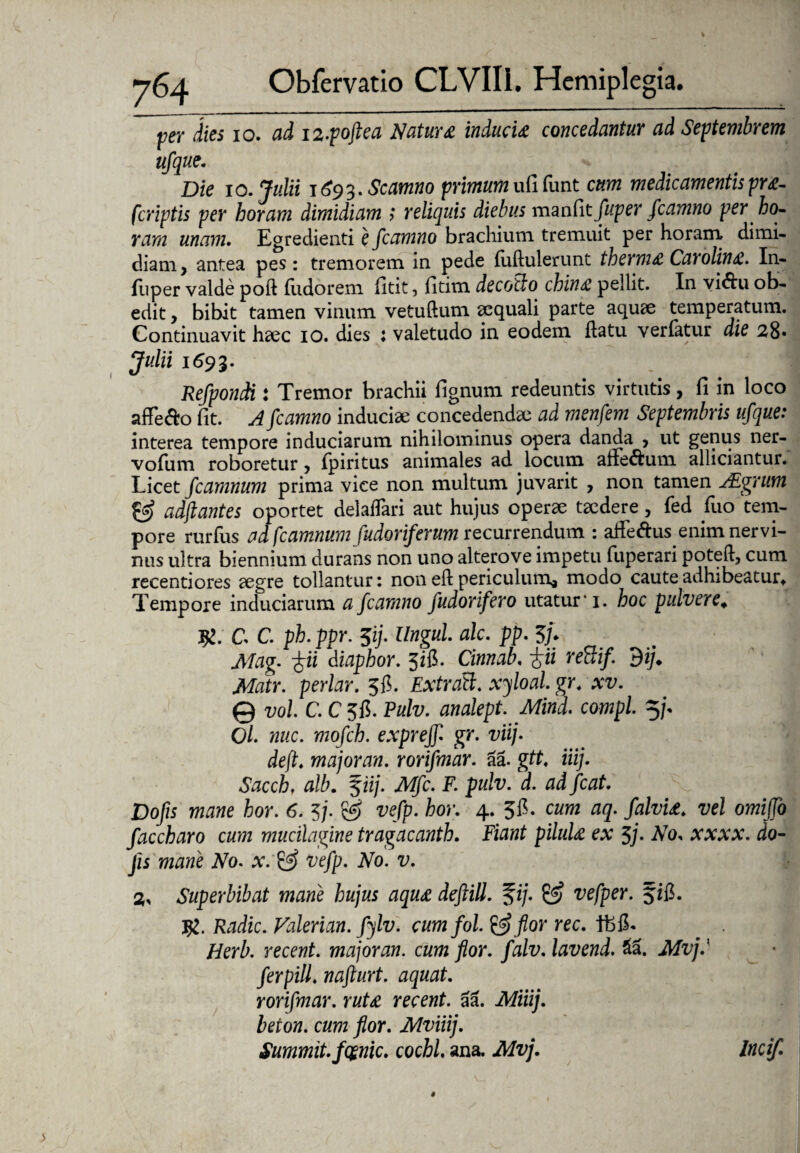 764 Obſervatio CLVIII. Hemiplegia.
per dies 10. ad 12. poſtea Naturæ induciæ concedantur ad Septembrem
uſque.
Die 10. Julii 1693. Scamno primum uſi ſunt cum medicamentis præ-
ſcriptis per horam dimidiam ; reliquis diebus manſit ſuper ſcamno per ho-
ram unam. Egredienti è ſcamno brachium tremuit per horam dimi-
diam, antea pes : tremorem in pede ſuſtulerunt thermæ Carolinæ. In-
ſuper valdè poſt ſudorem ſitit, ſitim decocto chinæ pellit. In victu ob-
edit, bibit tamen vinum vetuſtum æquali parte aquæ temperatum.
Continuavit hæc 10. dies : valetudo in eodem ſtatu verſatur die 28.
Julii 1693.
Reſpondi : Tremor brachii ſignum redeuntis virtutis, ſi in loco
affecto ſit. A ſcamno induciæ concedendæ ad menſem Septembris uſque:
interea tempore induciarum nihilominus opera danda , ut genus ner-
voſum roboretur, ſpiritus animales ad locum affectum alliciantur.
Licet ſcamnum prima vice non multum juvarit , non tamen Ægrum
& adſtantes oportet delaſſari aut hujus operæ tædere, ſed ſuo tem-
pore rurſus ad ſcamnum ſudoriferum recurrendum : affectus enim nervi-
nus ultra biennium durans non uno alterove impetu ſuperari poteſt, cum
recentiores ægre tollantur: non eſt periculum, modo caute adhibeatur.
Tempore induciarum a ſcamno ſudorifero utatur 1. hoc pulvere.
℞. C. C. ph. ppr. ʒij. Ungul. alc. pp. ʒj.
Mag. ♁ii diaphor. ʒiß. Cinnab. ♁ii rectif. ℈ij.
Matr. perlar. ʒß. Extract. xyloal. gr. xv.
🜔 vol. C. C ʒß. Pulv. analept. Mind. compl. ʒj.
Ol. nuc. moſch. expreſſ. gr. viij.
deſt. majoran. roriſmar. āā. gtt. iiij.
Sacch. alb. ℥iij. Mſc. F. pulv. d. ad ſcat.
Doſis mane hor. 6. ʒj. & veſp. hor. 4. ʒß. cum aq. ſalviæ. vel omiſſo
ſaccharo cum mucilagine tragacanth. Fiant pilulæ ex ʒj. No. xxxx. do-
ſis manè No. x. & veſp. No. v.
2. Superbibat manè hujus aquæ deſtill. ℥ij. & veſper. ℥iß.
℞. Radic. Valerian. ſylv. cum fol. & flor rec. ℔ß.
Herb. recent. majoran. cum flor. ſalv. lavend. āā. Mvj.
ſerpill. naſturt. aquat.
roriſmar. rutæ recent. āā. Miiij.
beton. cum flor. Mviiij.
Summit. fœnic. cochl. ana. Mvj. Inciſ.